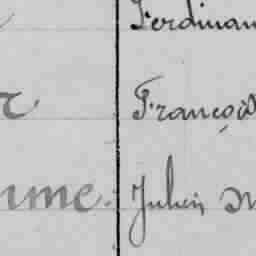 Ferdinan
r François
mme. Julien M